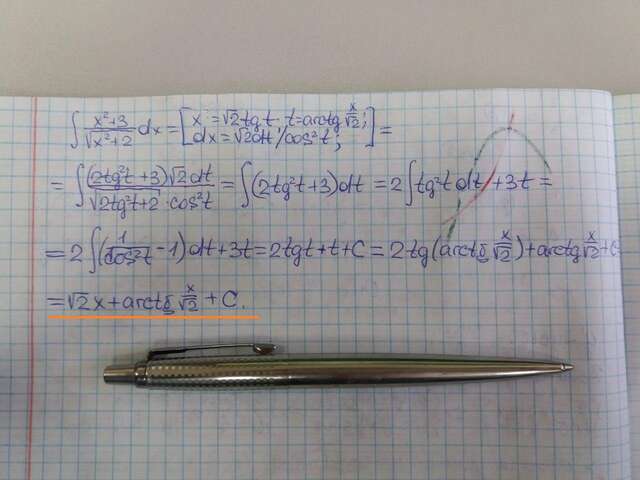 ∫ (x²+3)/√(x²+2) dx = [x = √2 tg t, t = arctg x/√2; dx = √2 dt/cos²t;] =
= ∫ (2tg²t + 3)√2 dt / (√(2tg²t + 2) · cos²t) = ∫ (2tg²t + 3) dt = 2 ∫ tg²t dt + 3t =
= 2 ∫ (1/cos²t − 1) dt + 3t = 2tg t + t + C = 2tg(arctg x/√2) + arctg x/√2 + C
= √2 x + arctg x/√2 + C.